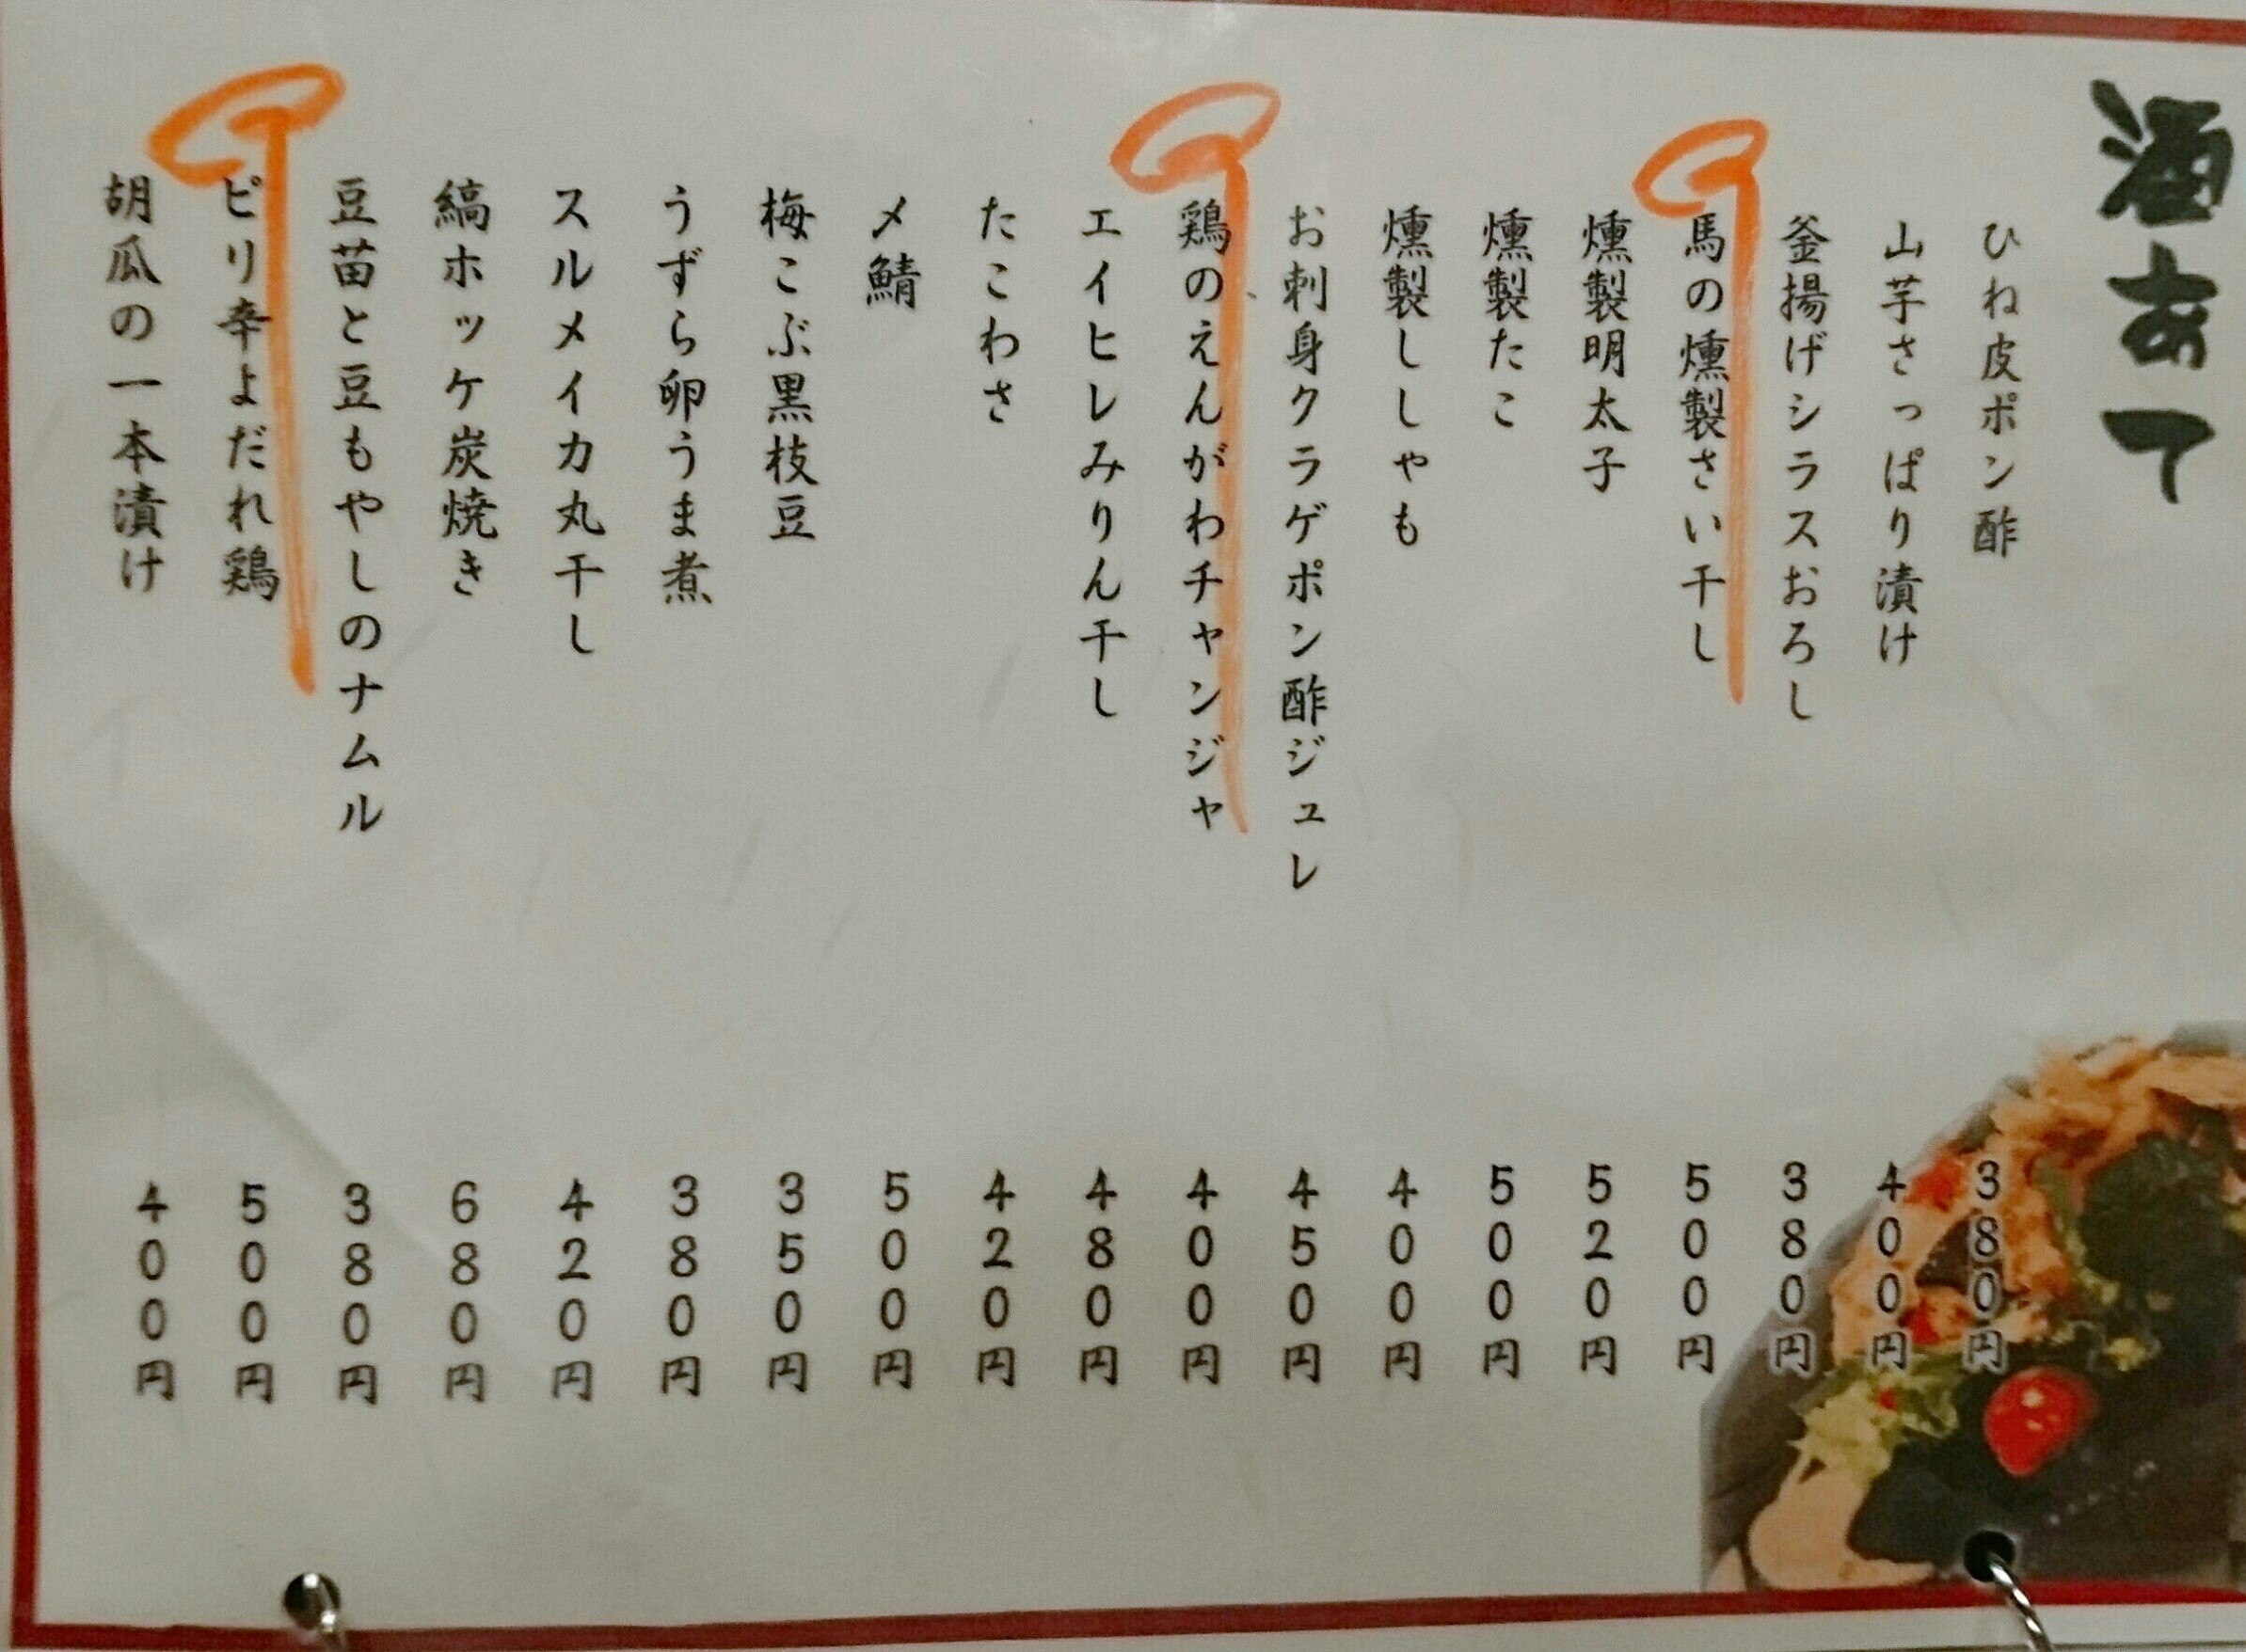 酒あて
ひね皮ポン酢 380円
山芋さっぱり漬け 400円
釜揚げシラスおろし 380円
馬の燻製さい干し 500円
燻製明太子 520円
燻製たこ 500円
燻製ししゃも 400円
お刺身クラゲポン酢ジュレ 450円
鶏のえんがわチャンジャ 400円
エイヒレみりん干し 480円
たこわさ 420円
〆鯖 500円
梅こぶ黒枝豆 350円
うずら卵うま煮 380円
スルメイカ丸干し 420円
縞ホッケ炭焼き 680円
豆苗と豆もやしのナムル 380円
ピリ辛よだれ鶏 500円
胡瓜の一本漬け 400円